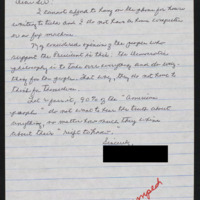 Dear Sir:
I cannot afford to hang on the phone for hours
waiting to take and I do not have a home computer
or a fax machine.
My considered opinion of the people who
support the President is that the democratic
philosophy is to take over everything and do every-
thing for the people. That way, they do not have to
think for themselves.
In general, 90% of the "American
people" do not want to hear the truth about
anything, no matter how much they
about their "right to know".
Sincerely,